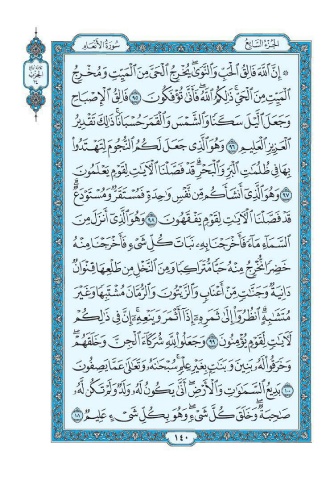 الجزء السابع
سورة الأنعام
۞ إِنَّ ٱللَّهَ فَالِقُ ٱلْحَبِّ وَٱلنَّوَىٰ يُخْرِجُ ٱلْحَيَّ مِنَ ٱلْمَيِّتِ وَمُخْرِجُ
ٱلْمَيِّتِ مِنَ ٱلْحَيِّ ذَٰلِكُمُ ٱللَّهُ فَأَنَّىٰ تُؤْفَكُونَ ٩٥ فَالِقُ ٱلْإِصْبَاحِ
وَجَعَلَ ٱلَّيْلَ سَكَنًا وَٱلشَّمْسَ وَٱلْقَمَرَ حُسْبَانًا ذَٰلِكَ تَقْدِيرُ
ٱلْعَزِيزِ ٱلْعَلِيمِ ٩٦ وَهُوَ ٱلَّذِي جَعَلَ لَكُمُ ٱلنُّجُومَ لِتَهْتَدُوا۟
بِهَا فِي ظُلُمَٰتِ ٱلْبَرِّ وَٱلْبَحْرِ قَدْ فَصَّلْنَا ٱلْآيَٰتِ لِقَوْمٍ يَعْلَمُونَ
٩٧ وَهُوَ ٱلَّذِي أَنشَأَكُم مِّن نَّفْسٍ وَٰحِدَةٍ فَمُسْتَقَرٌّ وَمُسْتَوْدَعٌ
قَدْ فَصَّلْنَا ٱلْآيَٰتِ لِقَوْمٍ يَفْقَهُونَ ٩٨ وَهُوَ ٱلَّذِي أَنزَلَ مِنَ
ٱلسَّمَآءِ مَآءً فَأَخْرَجْنَا بِهِۦ نَبَاتَ كُلِّ شَيْءٍ فَأَخْرَجْنَا مِنْهُ
خَضِرًا نُّخْرِجُ مِنْهُ حَبًّا مُّتَرَاكِبًا وَمِنَ ٱلنَّخْلِ مِن طَلْعِهَا قِنْوَانٌ
دَانِيَةٌ وَجَنَّٰتٍ مِّنْ أَعْنَابٍ وَٱلزَّيْتُونَ وَٱلرُّمَّانَ مُشْتَبِهًا وَغَيْرَ
مُتَشَٰبِهٍ ٱنظُرُوٓا۟ إِلَىٰ ثَمَرِهِۦٓ إِذَآ أَثْمَرَ وَيَنْعِهِۦٓ إِنَّ فِي ذَٰلِكُمْ
لَآيَٰتٍ لِّقَوْمٍ يُؤْمِنُونَ ٩٩ وَجَعَلُوا۟ لِلَّهِ شُرَكَآءَ ٱلْجِنَّ وَخَلَقَهُمْ
وَخَرَقُوا۟ لَهُۥ بَنِينَ وَبَنَٰتٍ بِغَيْرِ عِلْمٍ سُبْحَٰنَهُۥ وَتَعَٰلَىٰ عَمَّا يَصِفُونَ
١٠٠ بَدِيعُ ٱلسَّمَٰوَٰتِ وَٱلْأَرْضِ أَنَّىٰ يَكُونُ لَهُۥ وَلَدٌ وَلَمْ تَكُن لَّهُۥ
صَٰحِبَةٌ وَخَلَقَ كُلَّ شَيْءٍ وَهُوَ بِكُلِّ شَيْءٍ عَلِيمٌ ١٠١
١٤٠